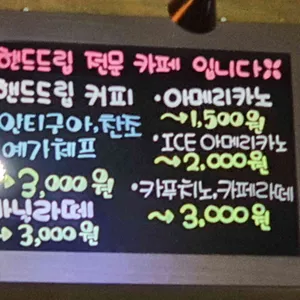 핸드드립 전문 카페 입니다
핸드드립 커피
안티구아, 찬조
예가체프
→ 3,000원
바닐라떼
→ 3,000원
·아메리카노
→1,500원
·ICE 아메리카노
→2,000원
·카푸치노, 카페라떼
→ 3,000원